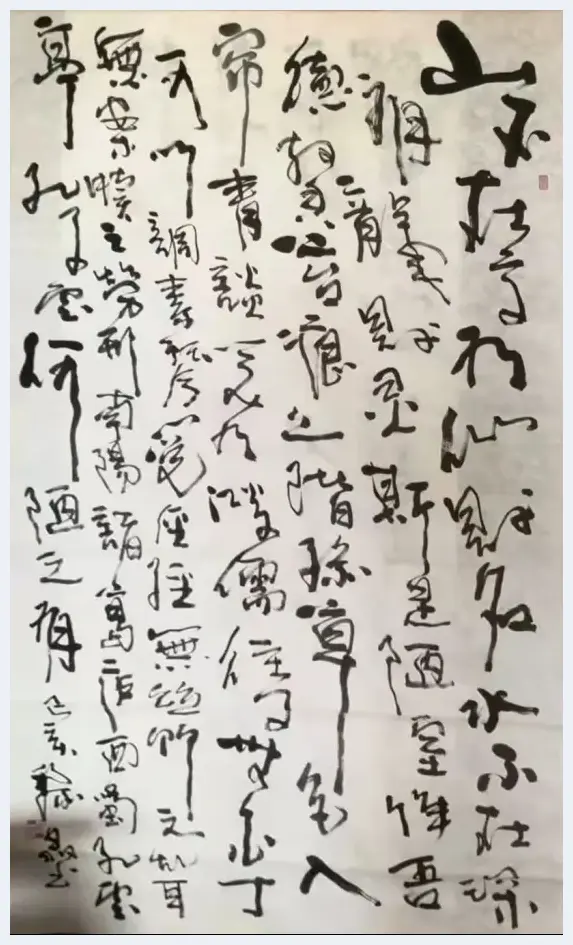 山不在高有仙則名水不在深
有龍則灵斯是陋室惟吾
德馨苔痕上階綠草色入
帘青談笑有鴻儒往来無白丁
可以調素琴金經無絲竹之乱耳
無案牘之勞形南陽諸葛庐西蜀子雲
亭孔子云何陋之有